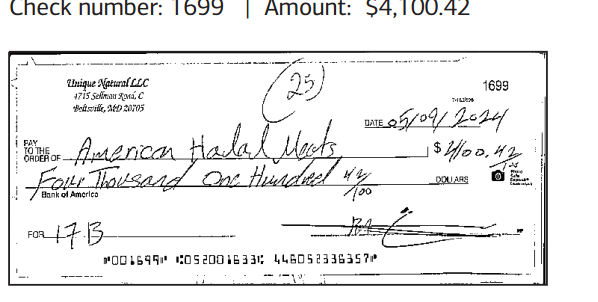 Check number: 1699 | Amount: $4,100.42
25
Unique Natural LLC
4715 Sellman Road, C
Beltsville, MD 20705
1699
DATE 05/09/2024
PAY TO THE ORDER OF American Halal Meats $4100.42
Four Thousand One Hundred 42/100 DOLLARS
Bank of America
FOR 17B
⑈001699⑈ ⑆052001633⑆ 446052336357⑈